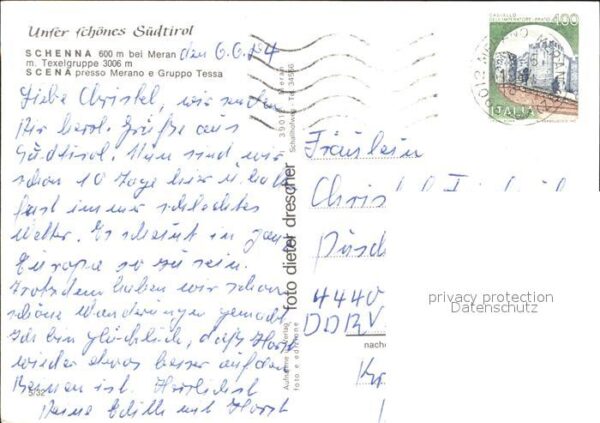 Unser schönes Südtirol
SCHENNA 600 m bei Meran
m. Texelgruppe 3006 m
SCENA presso Merano e Gruppo Tessa
den 6.6.84
Liebe Christel, wir senden
Dir herzl. Grüße aus
Südtirol. Nun sind wir
schon 10 Tage hier u. hatten
fast immer schlechtes
Wetter. Es scheint in ganz
Europa so zu sein.
Trotzdem haben wir schon
schöne Wanderungen gemacht
Ich bin glücklich, daß Horst
wieder etwas besser auf den
Beinen ist. Herzlichst
Deine Edith und Horst
5/32
foto dieter drescher
39012 Meran
Schallhofweg Tel. 34556
Aufnahme u. Verlag
foto e edizione
CASTELLO
DELL'IMPERATORE - PRATO
400
ITALIA
39012 MERANO
Fräulein
Christel
4440
DDR
privacy protection
Datenschutz
nache